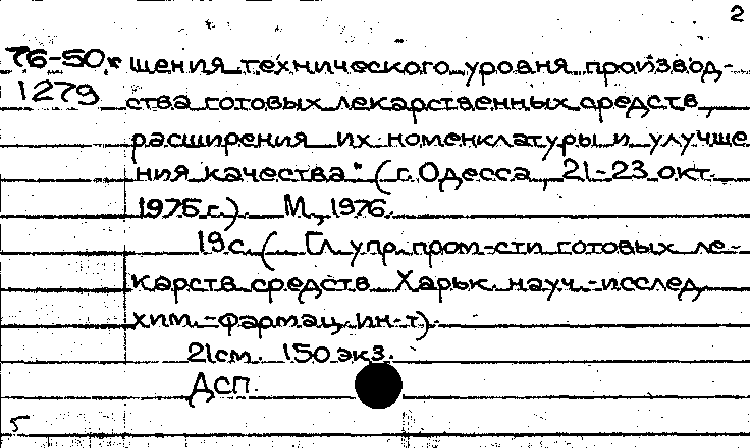 2
76-50к щения технического уровня производ-
1279 ства готовых лекарственных средств,
расширения их номенклатуры и улучше
ния качества" (г. Одесса, 21-23 окт.
1975 г.). М., 1976.
19с. (Гл упр. пром-сти готовых ле-
карств. средств. Харьк. науч.-исслед.
хим.-фармац. ин-т).
21см. 150 экз.
ДСП.
5